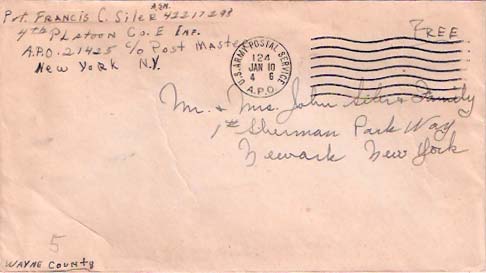 Pvt. Francis C. Siler A.S.N. 42217298
4th Platoon Co. E Inf.
A.P.O. 21425 c/o Post Master
New York N.Y.
U.S. ARMY POSTAL SERVICE
124
JAN 10
4 6
A.P.O.
FREE
Mr. & Mrs. John Siler & Family
1st Sherman Park Way
Newark New York
5
Wayne County